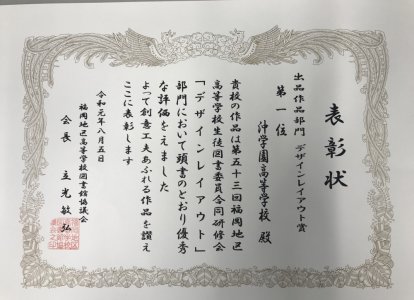 表彰状
出品作品部門 デザインレイアウト賞
第一位
沖学園高等学校 殿
貴校の作品は第五十三回福岡地区
高等学校生徒図書委員合同研修会
「デザインレイアウト」
部門において頭書のとおり優秀
な評価をえました
よって創意工夫あふれる作品を讃え
ここに表彰します
令和元年八月五日
福岡地区高等学校図書館協議会
会長 立光敏弘